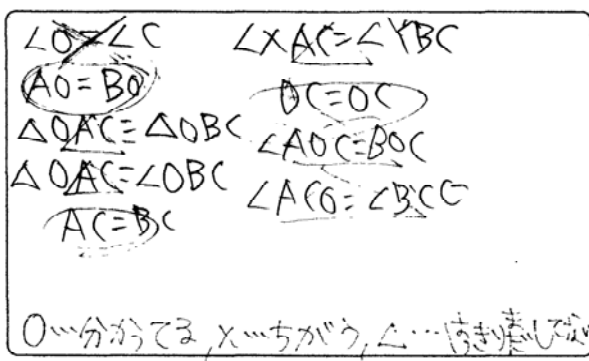 ∠O=∠C
AO=BO
△OAC≡△OBC
△OAC=∠OBC
AC=BC
∠XAC=∠YBC
OC=OC
∠AOC=BOC
∠ACO=∠BCC
O…分かってる,X…ちがう,△…はっきり表してない